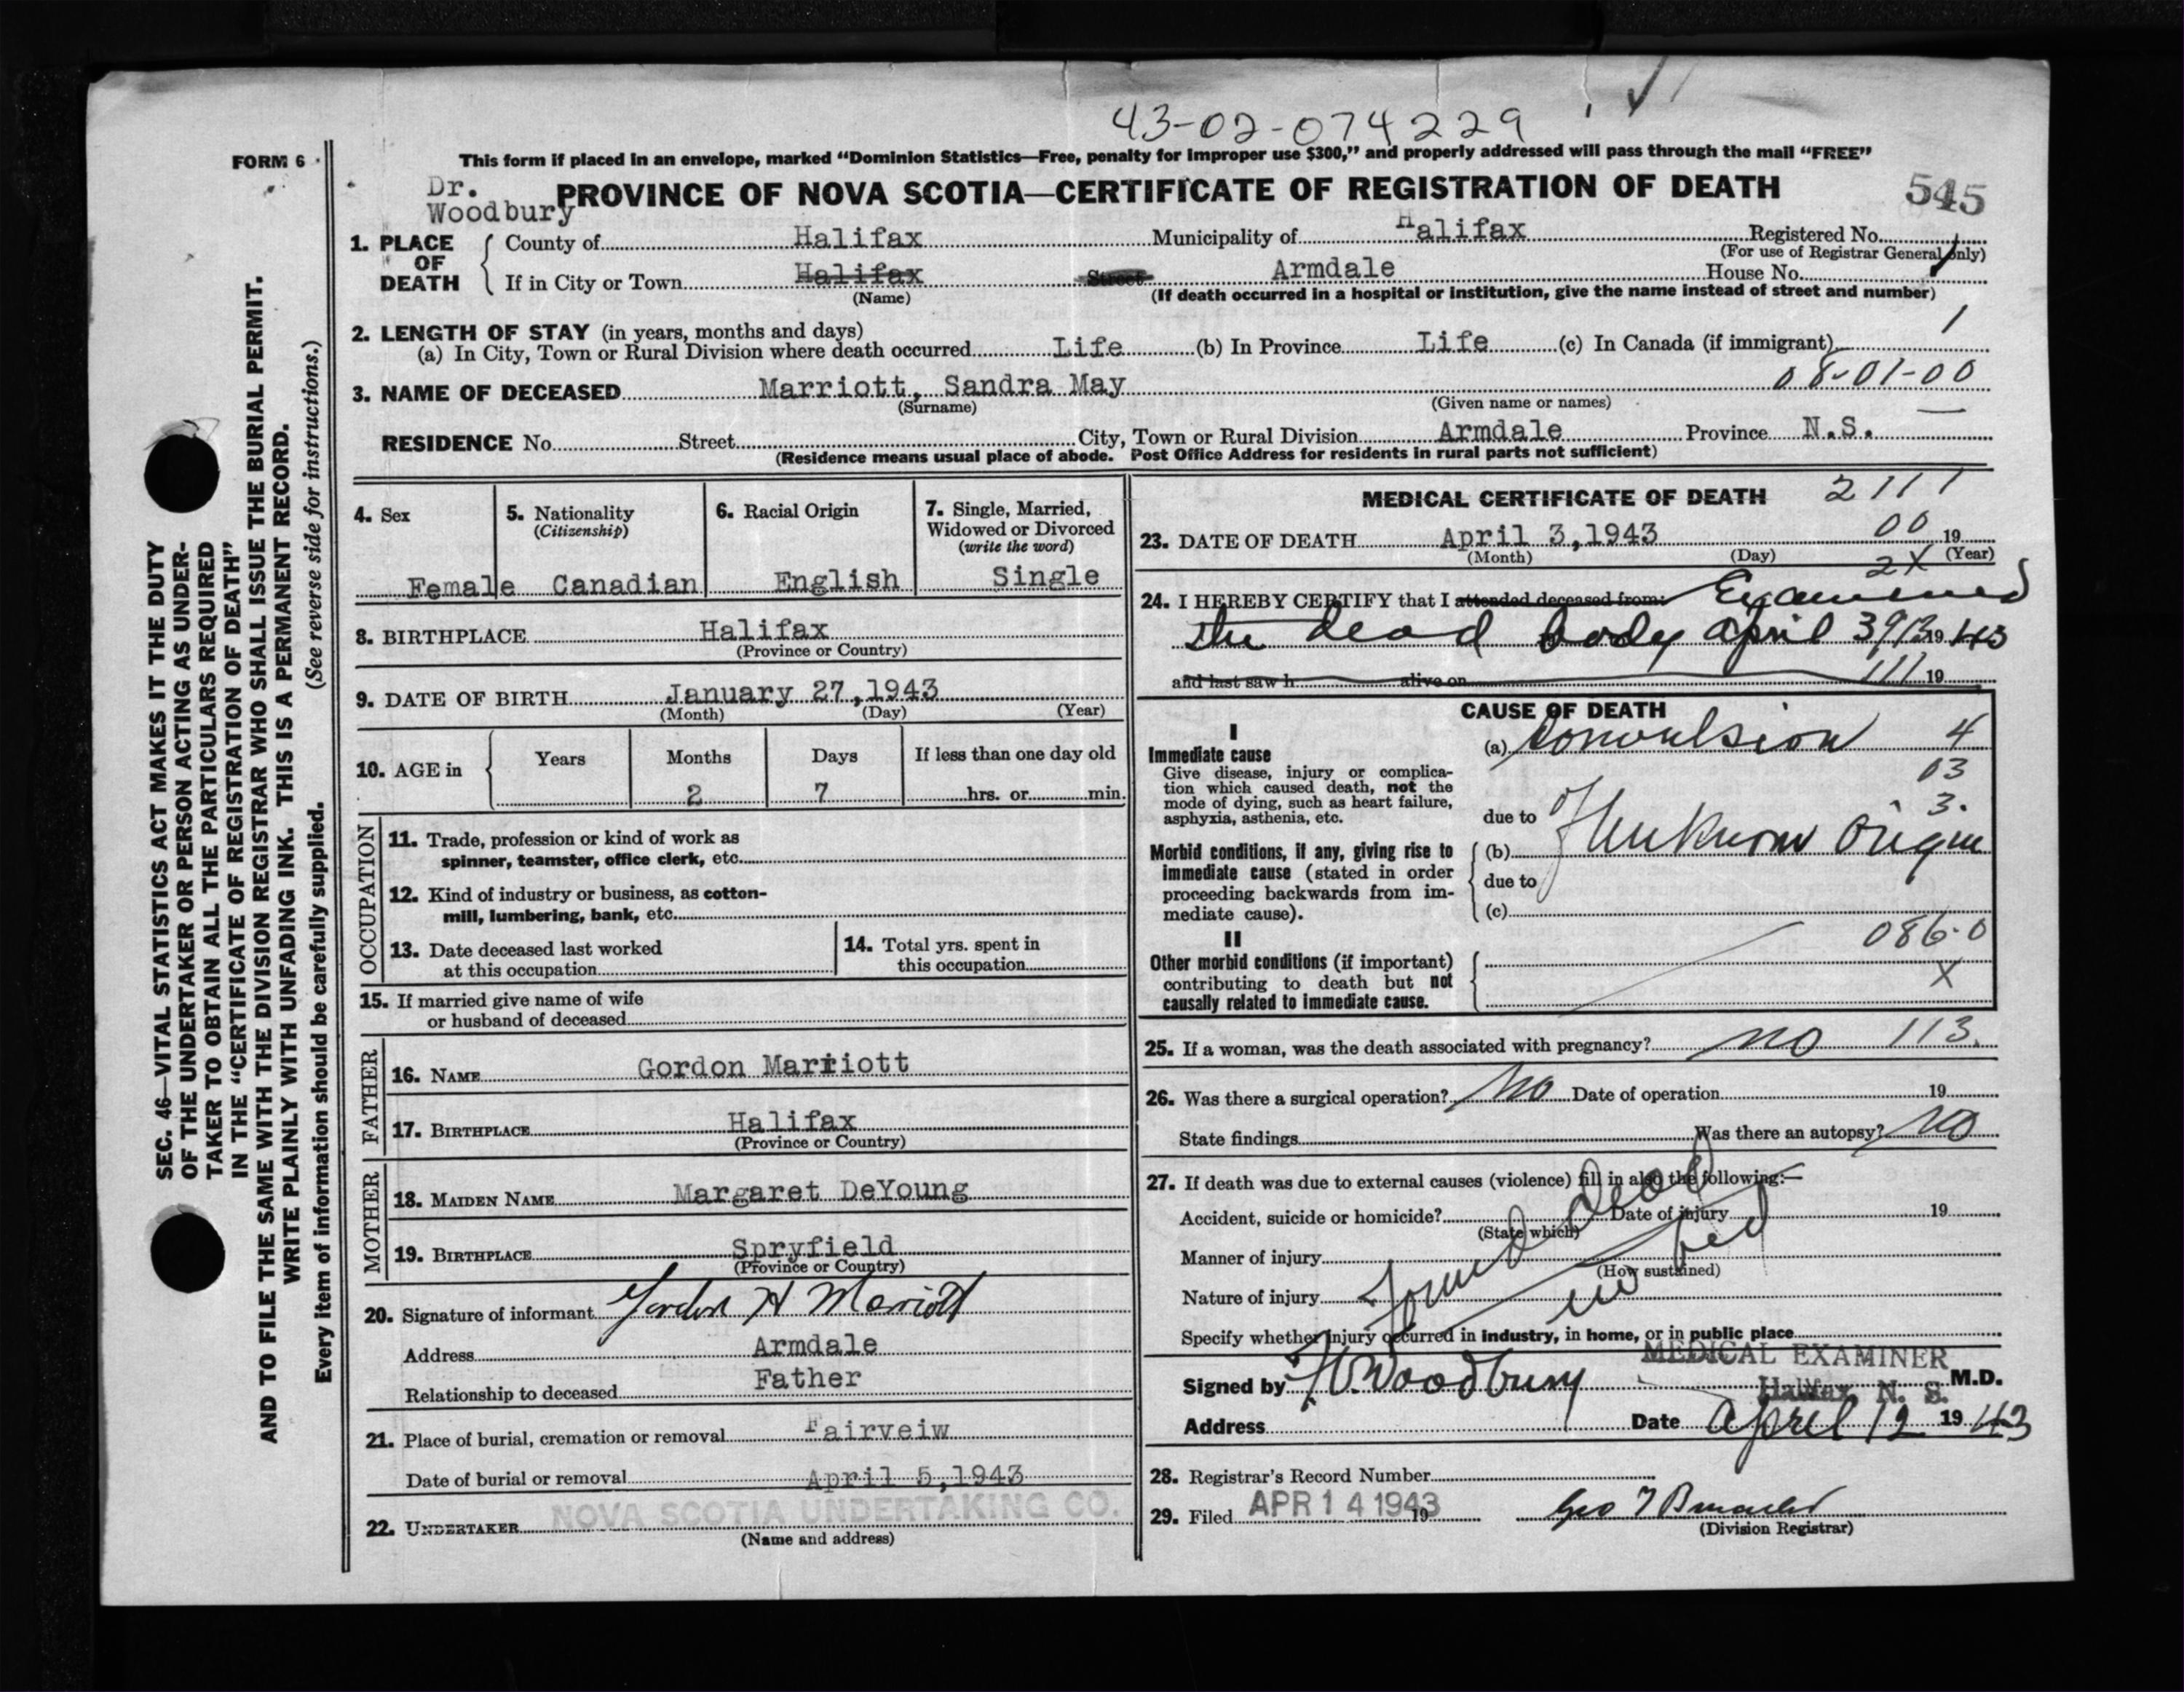 43-02-074229
FORM 6
This form if placed in an envelope, marked “Dominion Statistics—Free, penalty for improper use $300,” and properly addressed will pass through the mail “FREE”
Dr.
Woodbury
PROVINCE OF NOVA SCOTIA—CERTIFICATE OF REGISTRATION OF DEATH
545
1. PLACE OF DEATH
County of Halifax Municipality of Halifax Registered No.
(For use of Registrar General only)
If in City or Town Halifax Street Armdale House No.
(Name) (If death occurred in a hospital or institution, give the name instead of street and number)
2. LENGTH OF STAY (in years, months and days) 1
(a) In City, Town or Rural Division where death occurred Life (b) In Province Life (c) In Canada (if immigrant)
08-01-00
3. NAME OF DECEASED Marriott, Sandra May
(Surname) (Given name or names)
RESIDENCE No. Street City, Town or Rural Division Armdale Province N.S.
(Residence means usual place of abode. Post Office Address for residents in rural parts not sufficient)
4. Sex
Female
5. Nationality
(Citizenship)
Canadian
6. Racial Origin
English
7. Single, Married,
Widowed or Divorced
(write the word)
Single
8. BIRTHPLACE Halifax
(Province or Country)
9. DATE OF BIRTH January 27,1943
(Month) (Day) (Year)
10. AGE in
Years Months Days If less than one day old
2 7 hrs. or min.
OCCUPATION
11. Trade, profession or kind of work as
spinner, teamster, office clerk, etc.
12. Kind of industry or business, as cotton-
mill, lumbering, bank, etc.
13. Date deceased last worked
at this occupation
14. Total yrs. spent in
this occupation
15. If married give name of wife
or husband of deceased
FATHER
16. NAME Gordon Marriott
17. BIRTHPLACE Halifax
(Province or Country)
MOTHER
18. MAIDEN NAME Margaret DeYoung
19. BIRTHPLACE Spryfield
(Province or Country)
20. Signature of informant Gordon H Marriott
Address Armdale
Relationship to deceased Father
21. Place of burial, cremation or removal Fairveiw
Date of burial or removal April 5,1943
22. UNDERTAKER NOVA SCOTIA UNDERTAKING CO.
(Name and address)
MEDICAL CERTIFICATE OF DEATH 2111
23. DATE OF DEATH April 3,1943 00 19
(Month) (Day) (Year)
2X
24. I HEREBY CERTIFY that I attended deceased from: Examined
the dead body April 3 19 43
and last saw h alive on 111 19
CAUSE OF DEATH
I
Immediate cause
Give disease, injury or complica-
tion which caused death, not the
mode of dying, such as heart failure,
asphyxia, asthenia, etc.
(a) Convulsion 4
03
3.
due to of
Morbid conditions, if any, giving rise to
immediate cause (stated in order
proceeding backwards from im-
mediate cause).
(b) Unknown Origin
due to
(c)
086.0
X
II
Other morbid conditions (if important)
contributing to death but not
causally related to immediate cause.
25. If a woman, was the death associated with pregnancy? no 113.
26. Was there a surgical operation? No Date of operation 19
State findings Was there an autopsy? No
27. If death was due to external causes (violence) fill in also the following:—
Accident, suicide or homicide? Date of injury 19
(State which)
Manner of injury
(How sustained)
Nature of injury
Found dead
in bed
Specify whether injury occurred in industry, in home, or in public place
MEDICAL EXAMINER
Signed by Woodbury M.D.
Halifax, N. S.
Address Date April 12 19 43
28. Registrar's Record Number
29. Filed APR 14 1943 19
(Division Registrar)
SEC. 46—VITAL STATISTICS ACT MAKES IT THE DUTY
OF THE UNDERTAKER OR PERSON ACTING AS UNDER-
TAKER TO OBTAIN ALL THE PARTICULARS REQUIRED
IN THE “CERTIFICATE OF REGISTRATION OF DEATH”
AND TO FILE THE SAME WITH THE DIVISION REGISTRAR WHO SHALL ISSUE THE BURIAL PERMIT.
WRITE PLAINLY WITH UNFADING INK. THIS IS A PERMANENT RECORD.
Every item of information should be carefully supplied. (See reverse side for instructions.)